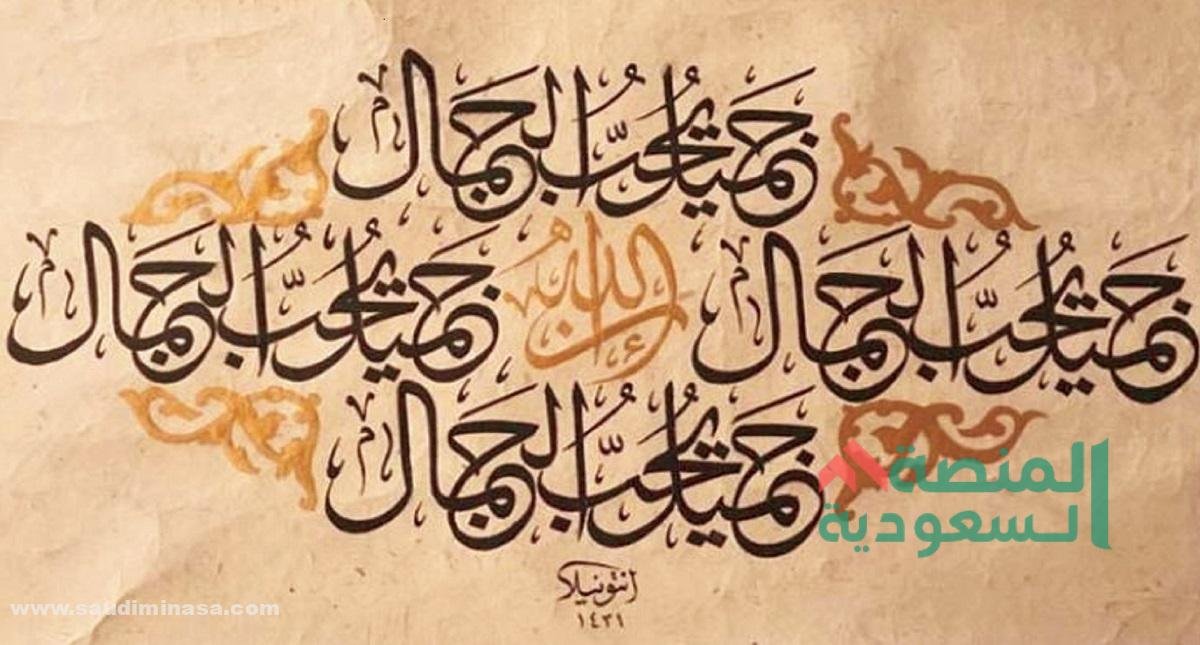 جميل يحب الجمال
جميل يحب الجمال
إن الله
جميل يحب الجمال
جميل يحب الجمال
المنصة
السعودية
انتونيلا
١٤٣١
www.saudiminasa.com